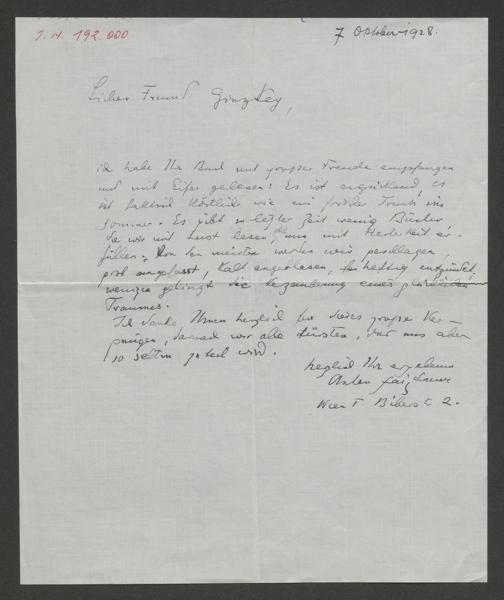 J. N. 192.000
7 Oktober 1928.
Lieber Freund Ginzkey,
ich habe Ihr Buch mit großer Freude empfangen
und mit Eifer gelesen: Es ist erquickend, es
ist köstlich wie ein Trunk im
Sommer. Es gibt in letzter Zeit wenig Bücher
die wir mit Lust lesen, die uns mit Heiterkeit er-
füllen. Von den meisten werden wir geschlagen,
grob angefasst, kalt angeblasen,
weniger gelingt die Bezauberung eines
Traumes.
Ich danke Ihnen herzlich für dieses große Ver-
gnügen, darnach wir alle dürsten, das uns aber
so selten zuteil wird.
herzlich Ihr ergebener
Anton Faistauer
Wien I Biberstr. 2.